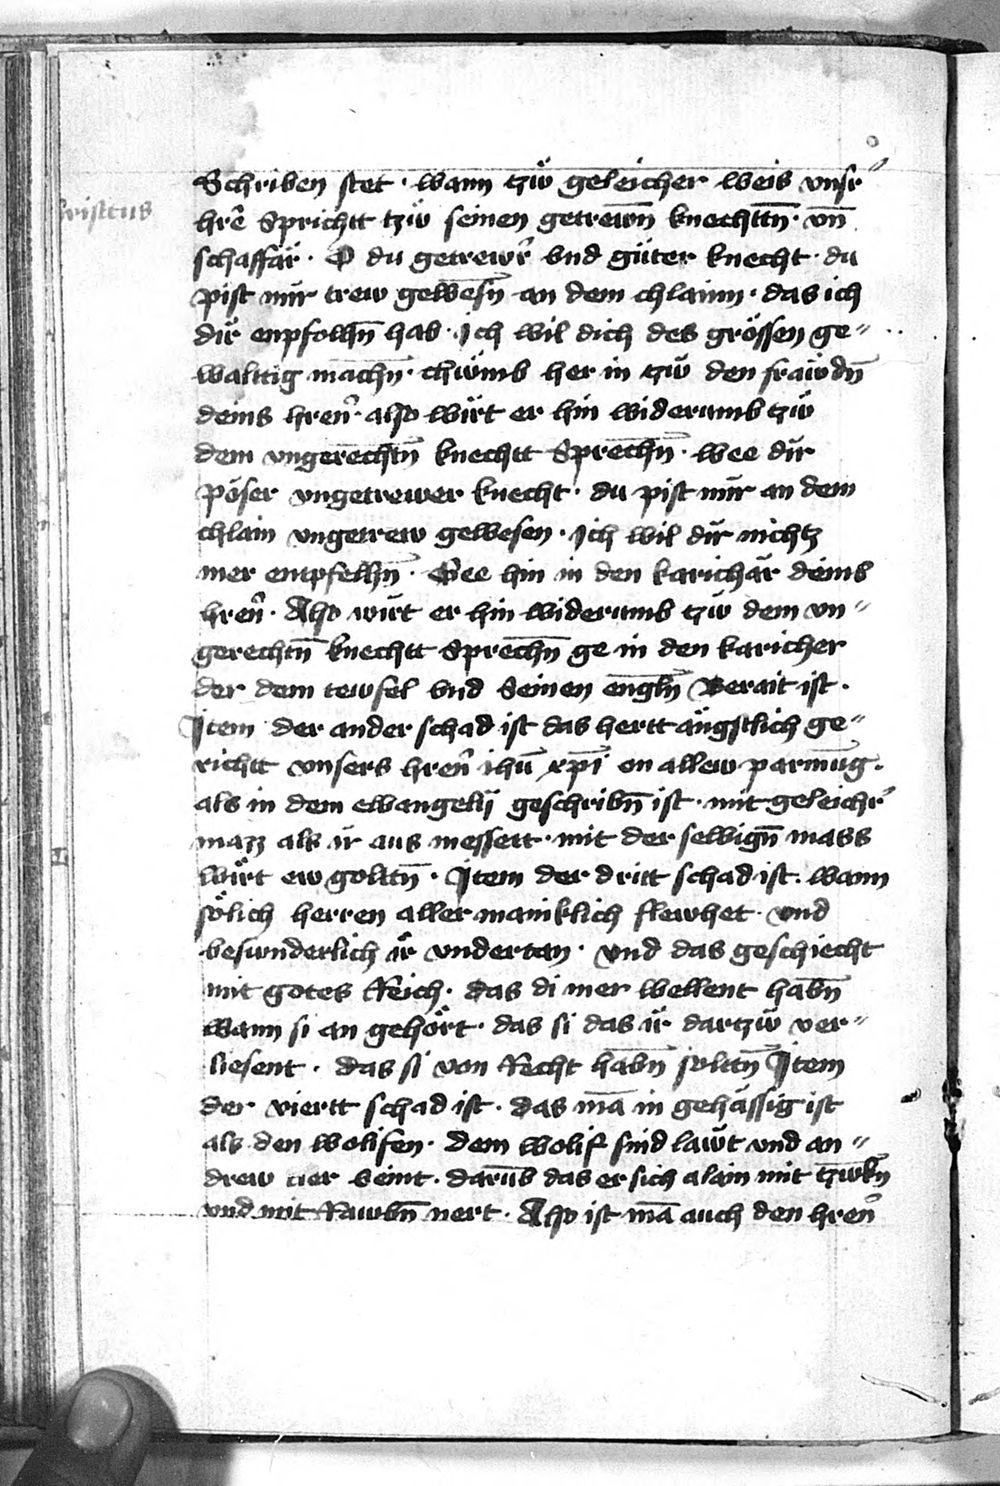 Schriben stet · wann tzẅ geleicher weis vnsr̄
hrē Sprichtt tzẅ seinen getrewn̄ knechttn̄ · vn̄
schaffär · O du getrewr̄ vnd güter knecht · du
pist mir trew gewesn̄ an dem chlainn · das ich
dir enpfolhn̄ hab · Ich wil dich des grössen ge〃
walttig machn̄ · chẅmb her in tzẅ den fräwdn̄
deins hren̄ · also wirt er hin widerumb tzẅ
dem vngerechtn̄ knechtt Sprechn̄ · wee dir
pöser vngetrewer knecht · du pist mir an dem
chlain vngetrew gewesen · Ich wil dir nichtz
mer empfelhn̄ · Gee hin in den karichär deins
hren̄ · Also wirt er hin widerumb tzẅ dem vn〃
gerechtn̄ knechtt Sprechn̄ ge in den karicher
der dem tewfel vnd Seinen engln̄ Berait ist ·
Item der ander schad ist das hertt ängstlich ge〃
richtt vnsers hren̄ ihū xp̄i on allew parmūg ·
als in dem ewangelij geschribn̄ ist · mit geleichr̄
mazz als ir aus messett · mit der selbign̄ mass
wirt ew goltn̄ · Item der dritt schad ist · wann
sölich herren aller mainklich flewhet · vnd
besunderlich ir vndertan · vnd das geschiecht
mit gotes Reich · das di mer wellent habn̄
wann si an gehört · das si das ir dartzẅ ver〃
liesent · das si von Recht habn̄ soltn̄ Item
der viertt schad ist · das mā in gehässig ist
als den wolifen · dem wolif sind läwt vnd an〃
drew tier veint · darūb das er sich alain mit tzwkn̄
vnd mit Rawbn̄ nert · Also ist mā auch den hren̄